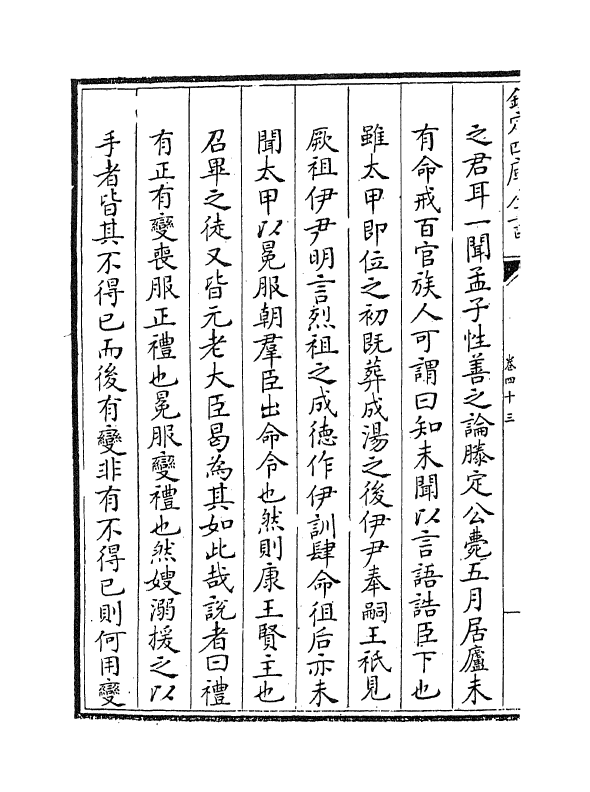 欽定四庫全書
卷四十三
之君耳一聞孟子性善之論滕定公薨五月居廬未
有命戒百官族人可謂曰知未聞以言語誥臣下也
雖太甲即位之初既葬成湯之後伊尹奉嗣王祇見
厥祖伊尹明言烈祖之成德作伊訓肆命徂后亦未
聞太甲以冕服朝羣臣出命令也然則康王賢主也
召畢之徒又皆元老大臣曷為其如此哉說者曰禮
有正有變喪服正禮也冕服變禮也然嫂溺援之以
手者皆其不得已而後有變非有不得已則何用變